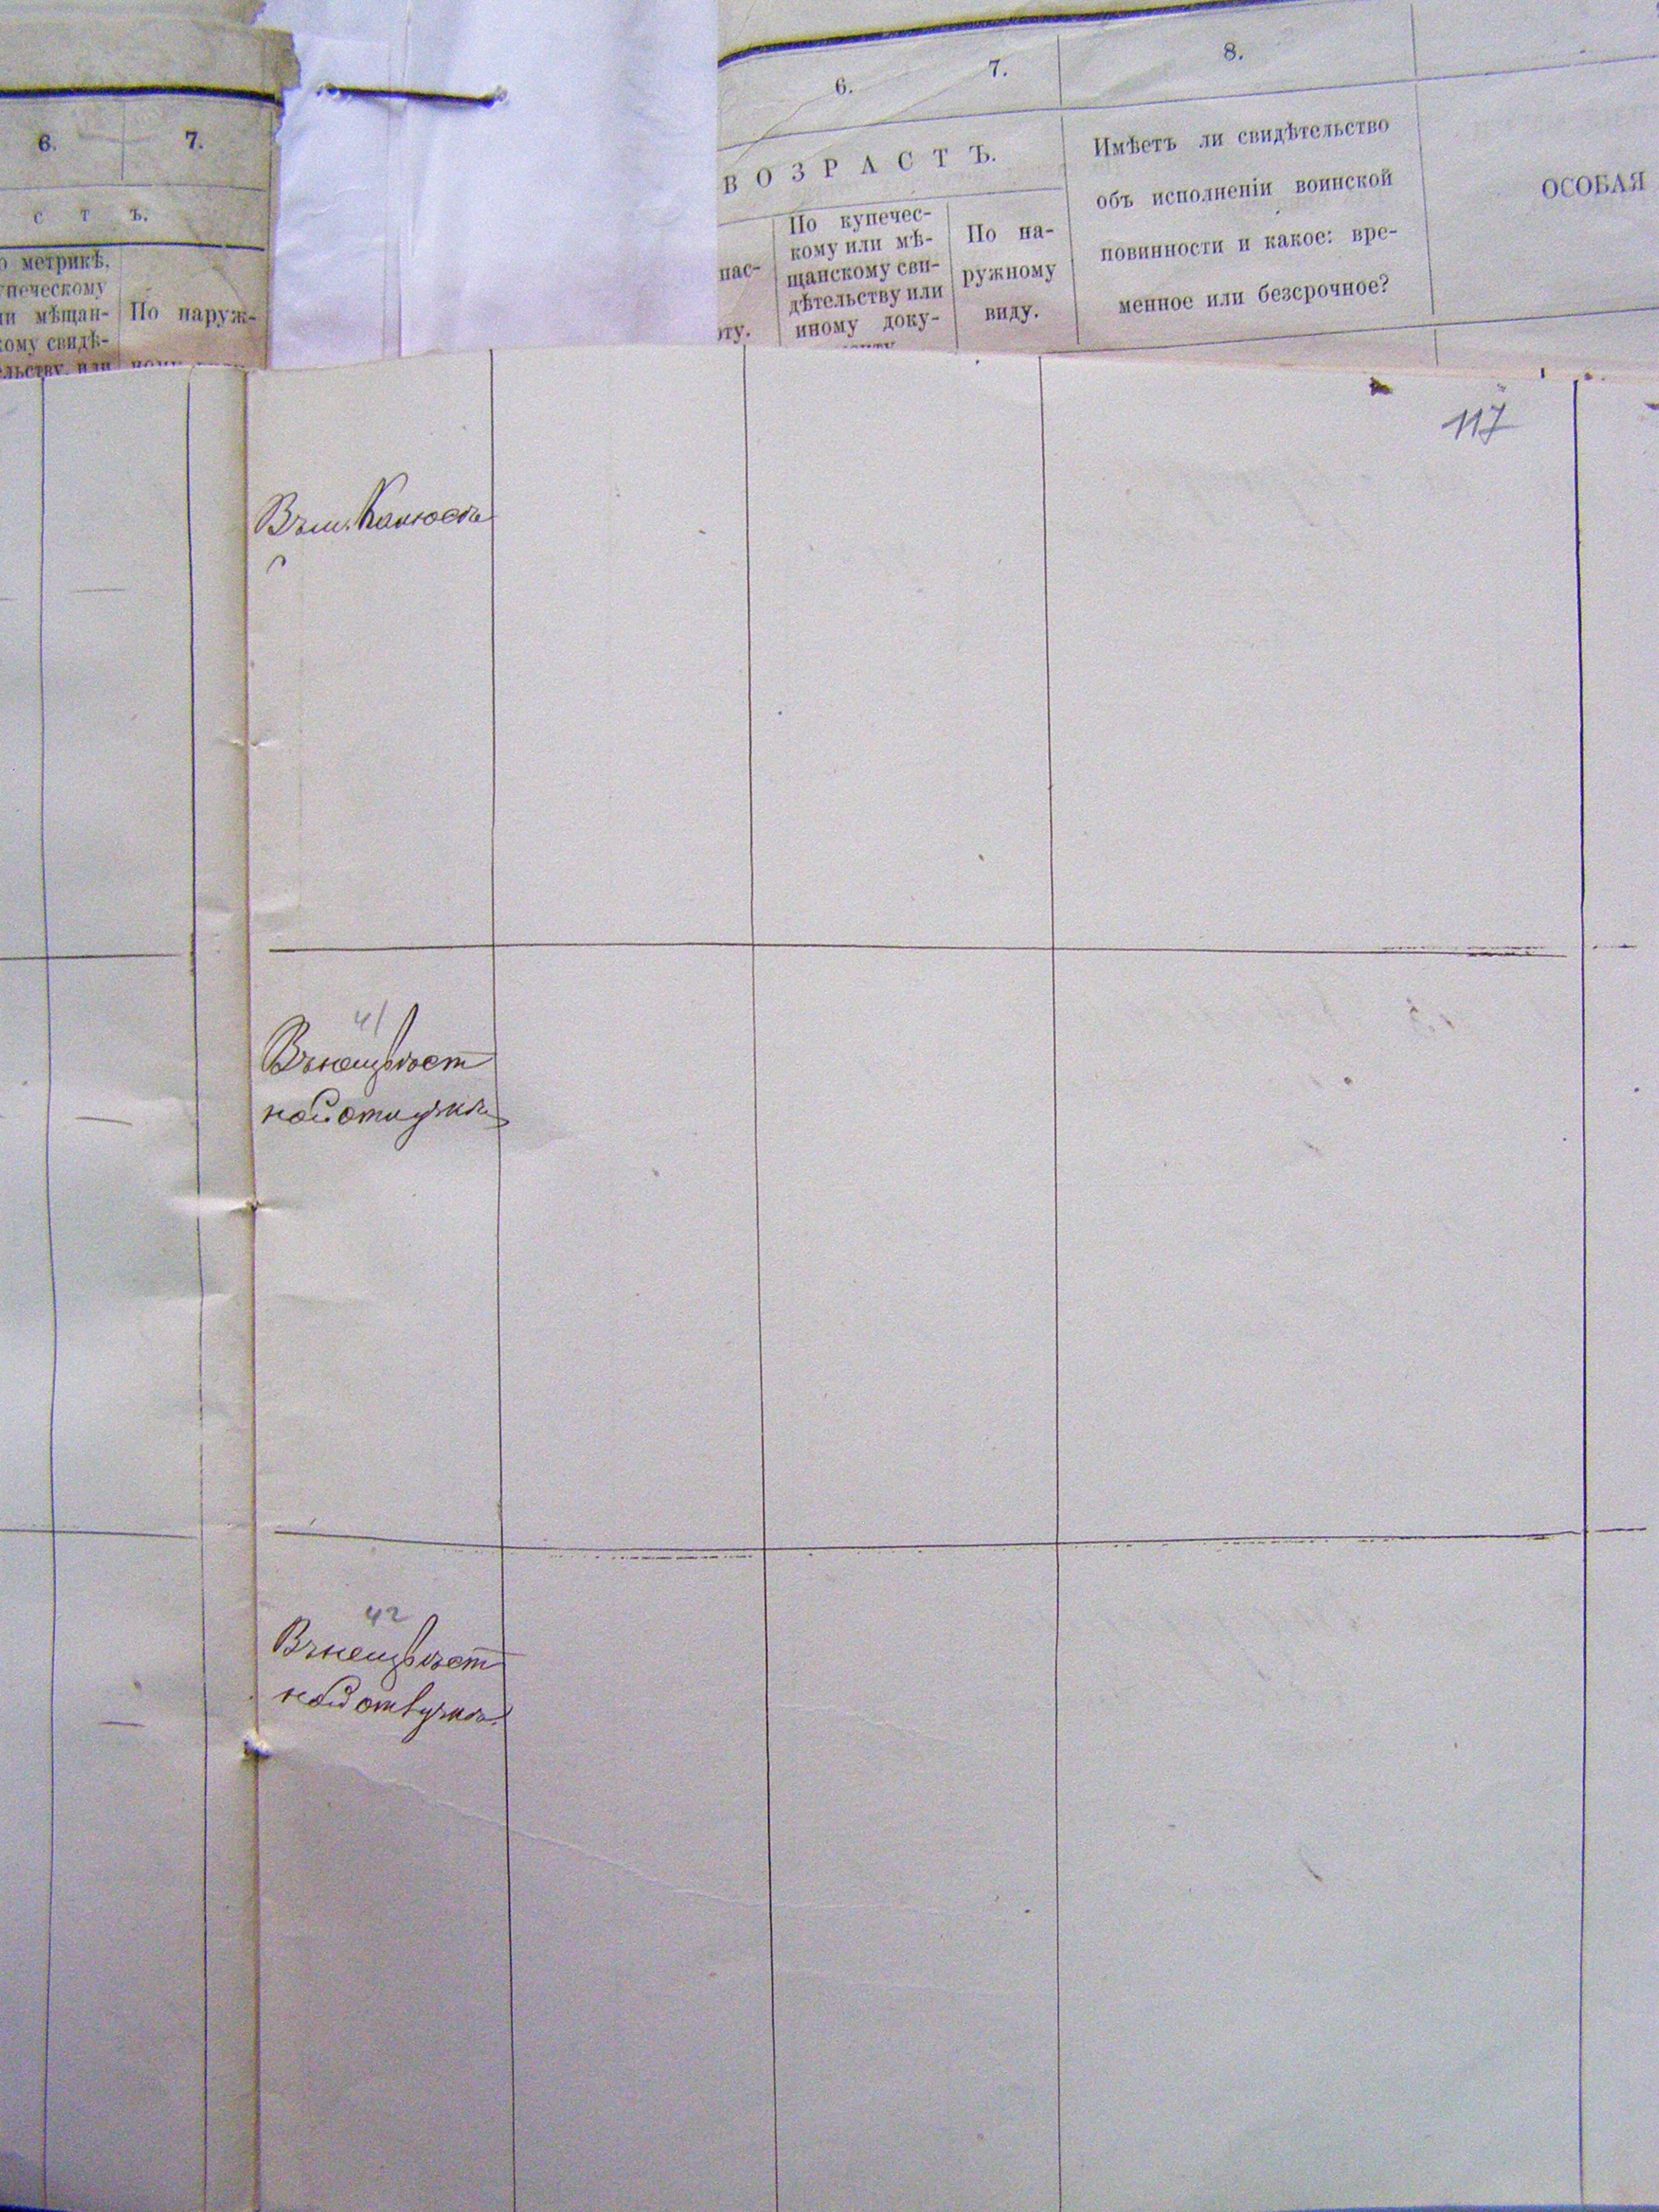 6. 7.
с т ъ.
о метрикѣ,
упеческому
ли мѣщан-
кому свидѣ-
ельству, или
По наруж-
6. 7. 8.
В О З Р А С Т Ъ.
пас-
рту.
По купечес-
кому или мѣ-
щанскому сви-
дѣтельству или
иному доку-
По на-
ружному
виду.
Имѣетъ ли свидѣтельство
объ исполненіи воинской
повинности и какое: вре-
менное или безсрочное?
ОСОБАЯ
117
Въ м.
41
Въ неизвѣст
ной отлучкѣ
42
Въ неизвѣст
ной отлучкѣ.